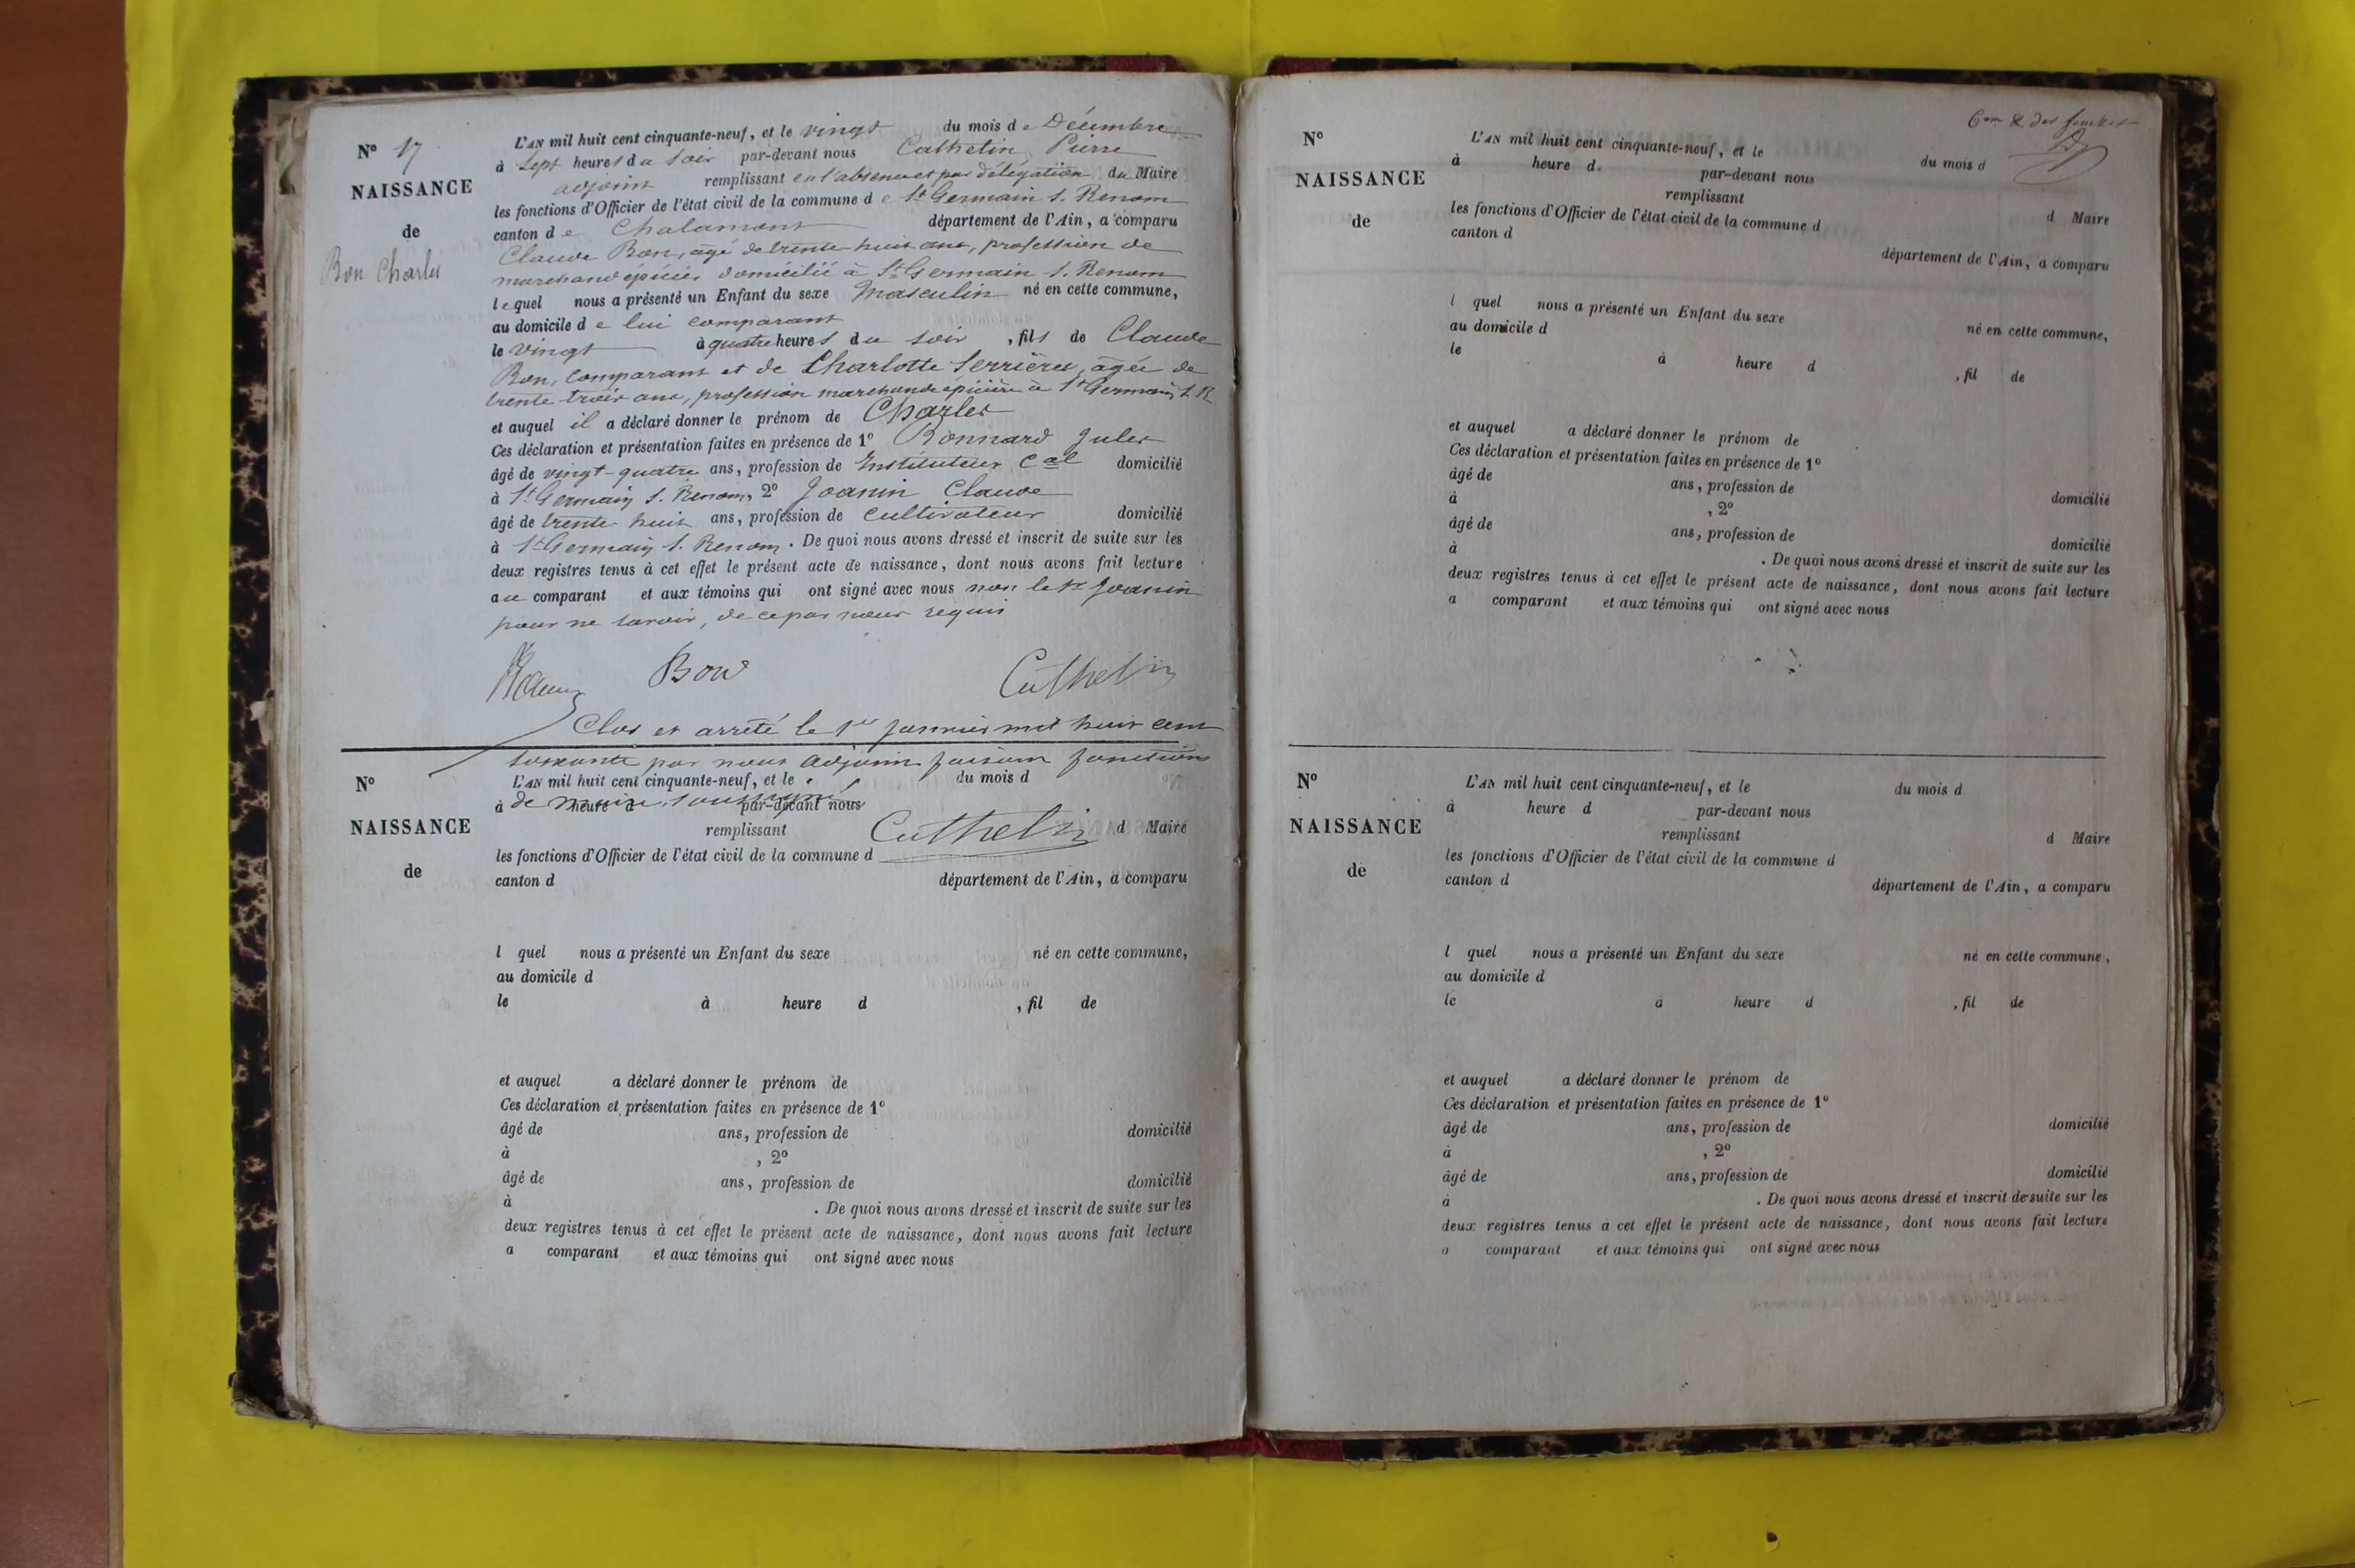 N° 17
NAISSANCE
de
Bon Charles
L'AN mil huit cent cinquante-neuf, et le vingt du mois de Décembre
à Sept heures du Soir par-devant nous Cathelin Pierre
adjoint remplissant en l'absence et par délégation du Maire
les fonctions d'Officier de l'état civil de la commune de St Germain s. Renom
canton de Chalamont département de l'Ain, a comparu
Claude Bon, âgé de trente-huit ans, profession de
marchand épicier domicilié à St Germain s. Renom
lequel nous a présenté un Enfant du sexe Masculin né en cette commune,
au domicile de lui comparant
le vingt à quatre heures du soir , fils de Claude
Bon, comparant et de Charlotte Serrières, âgée de
trente trois ans, profession marchande épicière à St Germain s. R
et auquel il a déclaré donner le prénom de Charles
Ces déclaration et présentation faites en présence de 1° Bonnard Jules
âgé de vingt-quatre ans, profession de Instituteur Cal domicilié
à St Germain s. Renom, 2° Joanin Claude
âgé de trente huit ans, profession de Cultivateur domicilié
à St Germain s. Renom. De quoi nous avons dressé et inscrit de suite sur les
deux registres tenus à cet effet le présent acte de naissance, dont nous avons fait lecture
au comparant et aux témoins qui ont signé avec nous non le sr Joanin
pour ne savoir, de ce par nous requis
Bon Cathelin
Clos et arrêté le 1er Janvier mil huit cent
soixante par nous adjoint faisant fonctions
de maire soussigné
Cathelin
N°
NAISSANCE
de
L'AN mil huit cent cinquante-neuf, et le du mois d
à heure d par-devant nous
remplissant d Maire
les fonctions d'Officier de l'état civil de la commune d
canton d département de l'Ain, a comparu
l quel nous a présenté un Enfant du sexe né en cette commune,
au domicile d
le à heure d , fil de
et auquel a déclaré donner le prénom de
Ces déclaration et présentation faites en présence de 1°
âgé de ans, profession de domicilié
à , 2°
âgé de ans, profession de domicilié
à . De quoi nous avons dressé et inscrit de suite sur les
deux registres tenus à cet effet le présent acte de naissance, dont nous avons fait lecture
a comparant et aux témoins qui ont signé avec nous
N°
NAISSANCE
de
L'AN mil huit cent cinquante-neuf, et le du mois d
à heure d. par-devant nous
remplissant d Maire
les fonctions d'Officier de l'état civil de la commune d
canton d département de l'Ain, a comparu
l quel nous a présenté un Enfant du sexe né en cette commune,
au domicile d
le à heure d , fil de
et auquel a déclaré donner le prénom de
Ces déclaration et présentation faites en présence de 1°
âgé de ans, profession de domicilié
à , 2°
âgé de ans, profession de domicilié
à . De quoi nous avons dressé et inscrit de suite sur les
deux registres tenus à cet effet le présent acte de naissance, dont nous avons fait lecture
a comparant et aux témoins qui ont signé avec nous
N°
NAISSANCE
de
L'AN mil huit cent cinquante-neuf, et le du mois d
à heure d par-devant nous
remplissant d Maire
les fonctions d'Officier de l'état civil de la commune d
canton d département de l'Ain, a comparu
l quel nous a présenté un Enfant du sexe né en cette commune,
au domicile d
le à heure d , fil de
et auquel a déclaré donner le prénom de
Ces déclaration et présentation faites en présence de 1°
âgé de ans, profession de domicilié
à , 2°
âgé de ans, profession de domicilié
à . De quoi nous avons dressé et inscrit de suite sur les
deux registres tenus à cet effet le présent acte de naissance, dont nous avons fait lecture
a comparant et aux témoins qui ont signé avec nous